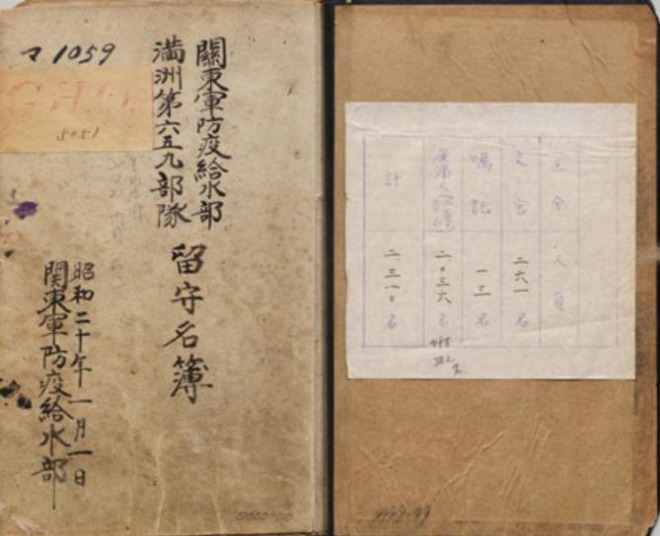 マ1059
G.H.Q.
5051
關東軍防疫給水部
満洲第六五九部隊
留守名簿
昭和二十年一月一日
関東軍防疫給水部
区分 人員
文官 二六一名
嘱託 一三名
二〇三六名
計 二、三一〇名